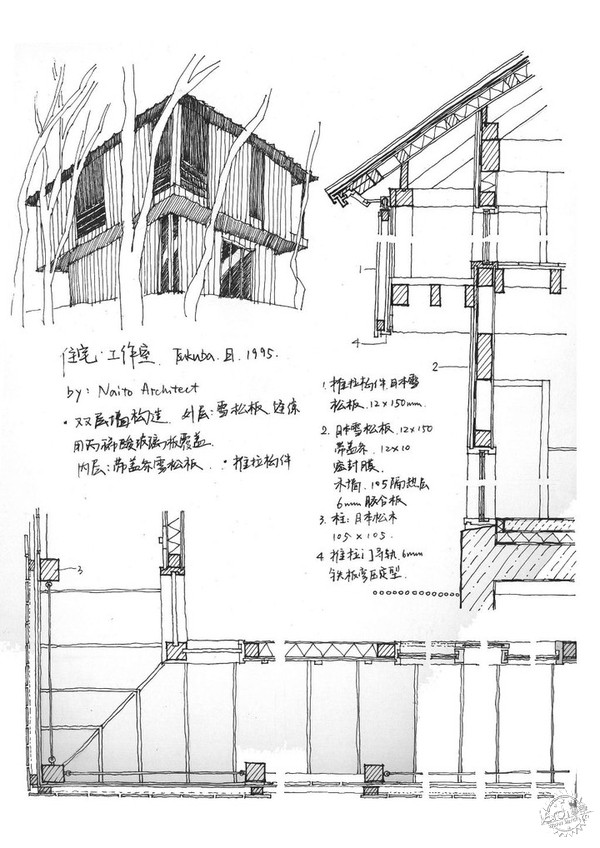 住宅·工作室. Tukuba. 日. 1995.
by: Naito Architect
· 双层墙构造. 外层: 雪松板 缝隙
用丙稀酸玻璃板覆盖.
内层: 带盖条雪松板. · 推拉构件
1. 推拉构件. 日本雪
松板. 12×150mm.
2. 日本雪松板. 12×150
带盖条. 12×10
密封膜.
木墙. 105隔热层
6mm 胶合板
3. 柱: 日本松木
105×105.
4 推拉门导轨. 6mm
铁板弯压定型.
1
4
2
3